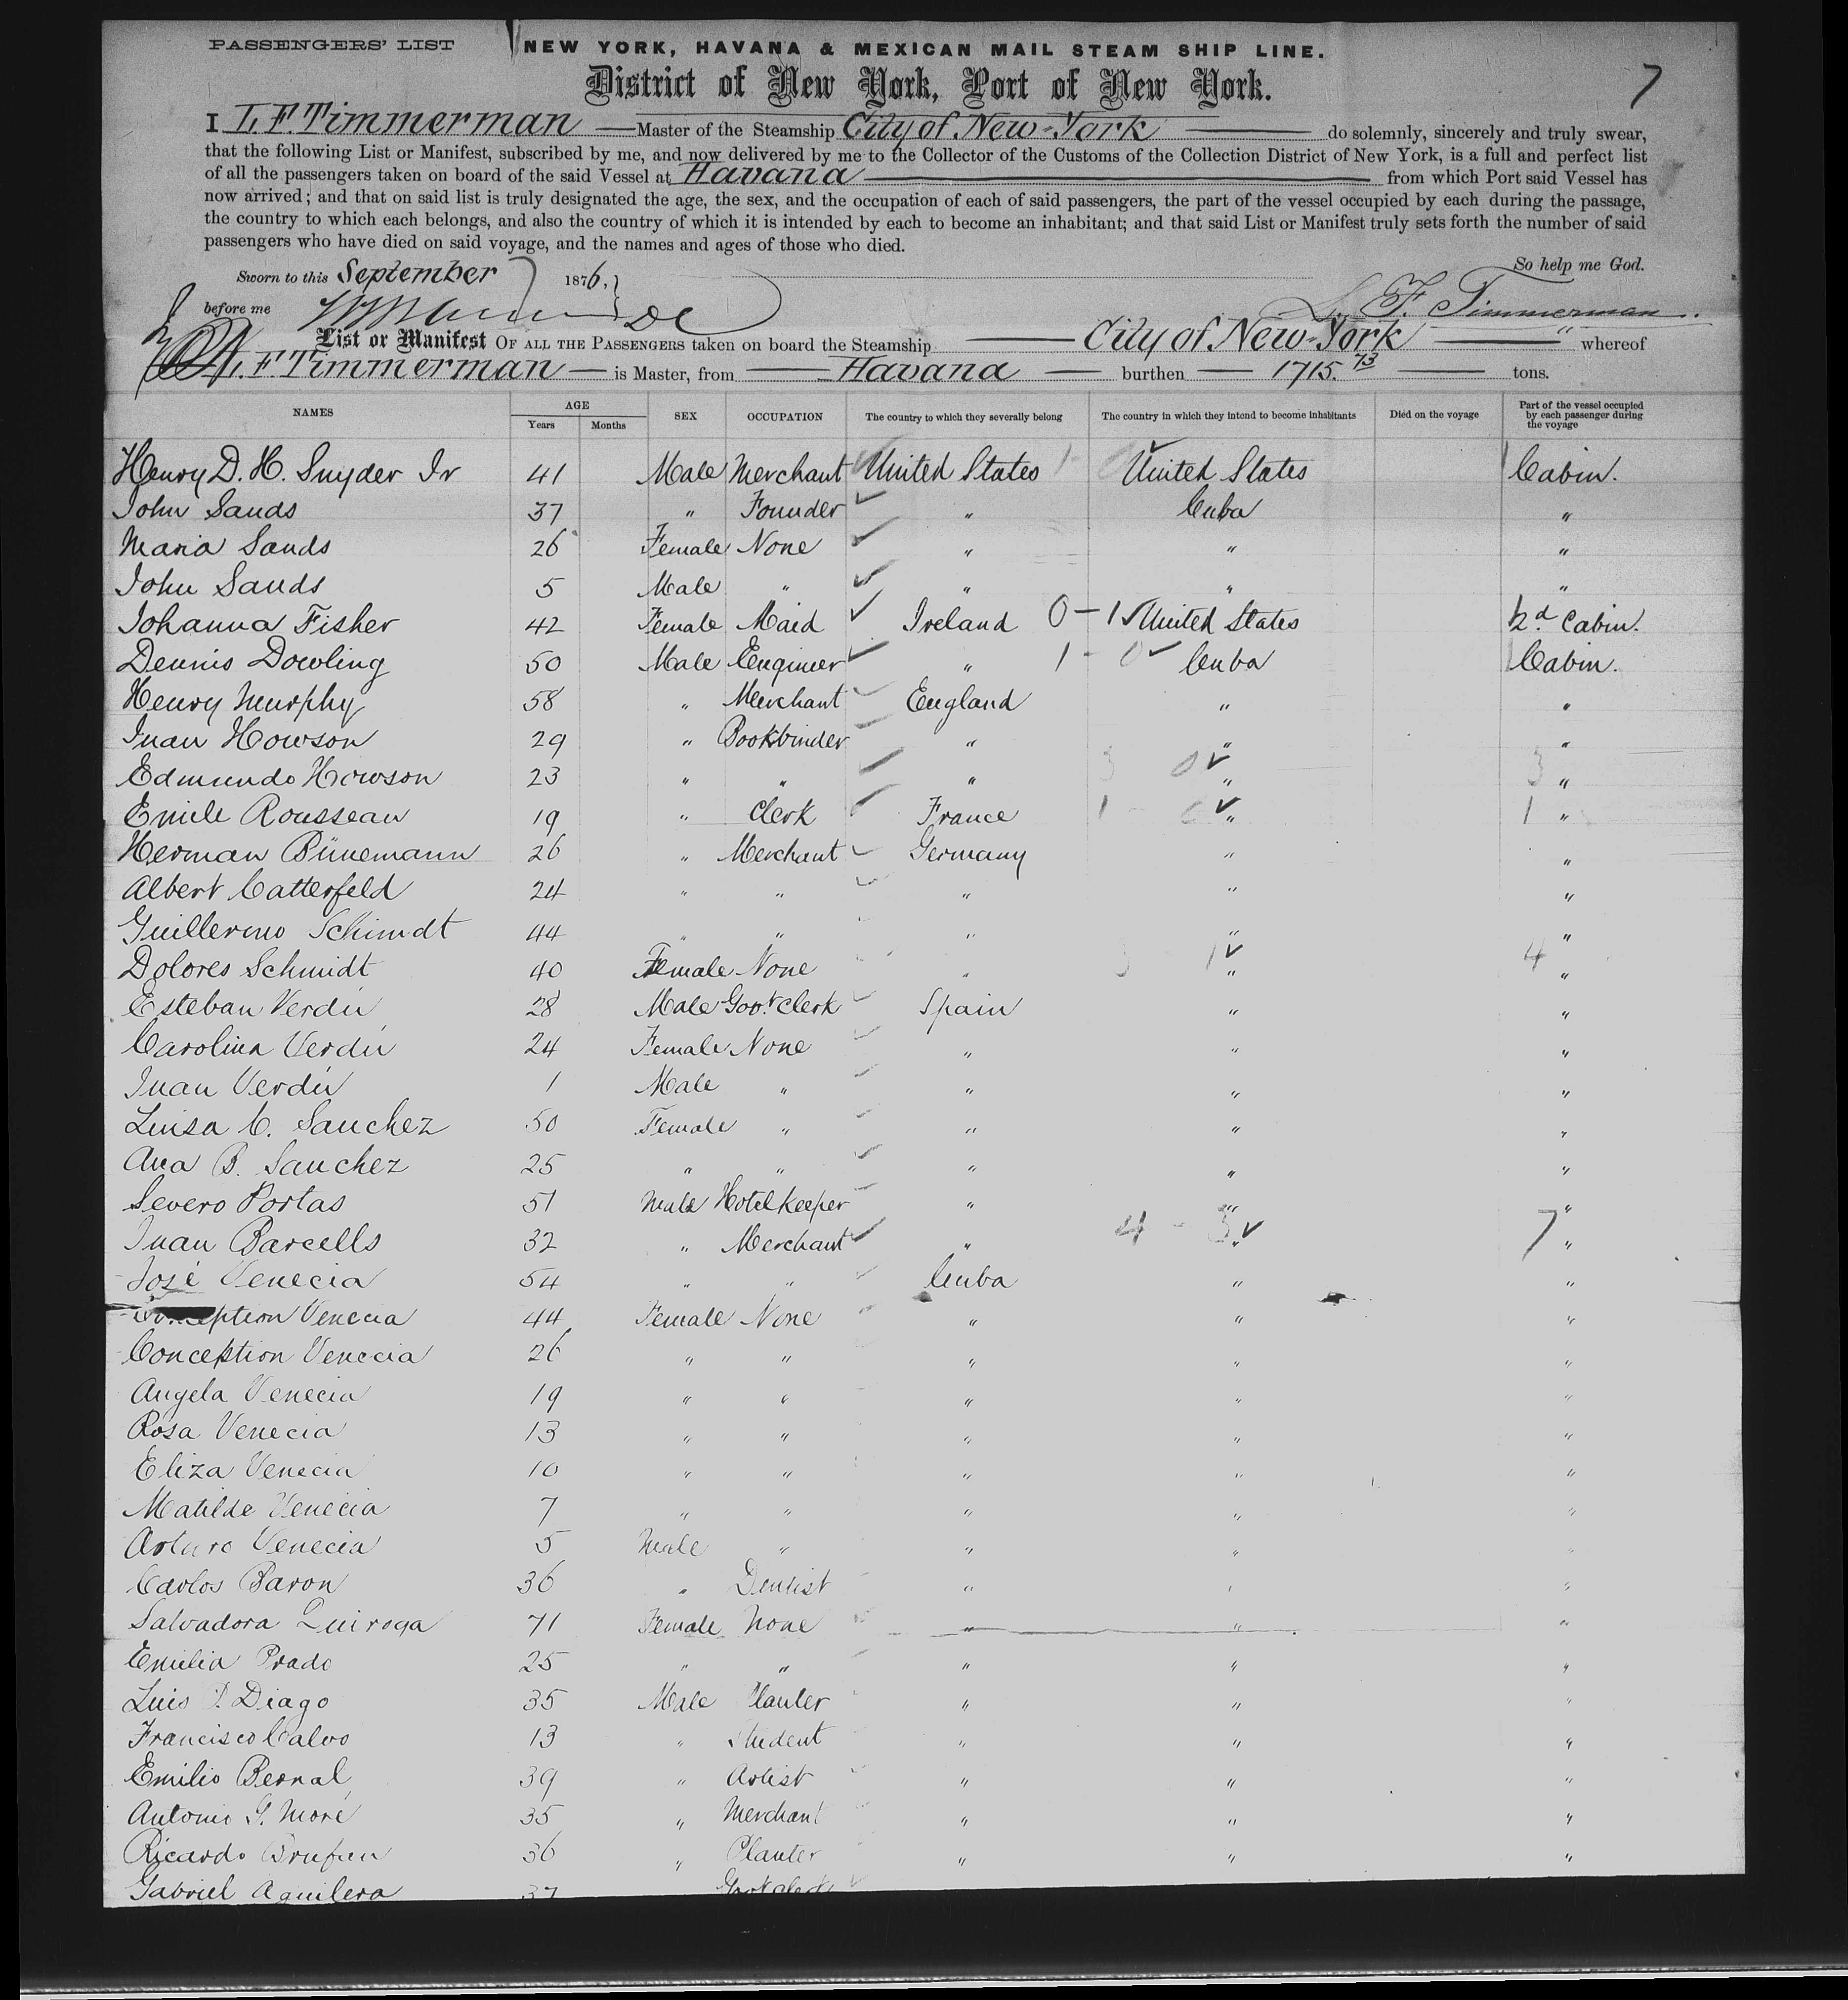 PASSENGERS' LIST
NEW YORK, HAVANA & MEXICAN MAIL STEAM SHIP LINE.
7
District of New York, Port of New York.
I L. F. Timmerman Master of the Steamship City of New-York do solemnly, sincerely and truly swear,
that the following List or Manifest, subscribed by me, and now delivered by me to the Collector of the Customs of the Collection District of New York, is a full and perfect list
of all the passengers taken on board of the said Vessel at Havana from which Port said Vessel has
now arrived; and that on said list is truly designated the age, the sex, and the occupation of each of said passengers, the part of the vessel occupied by each during the passage,
the country to which each belongs, and also the country of which it is intended by each to become an inhabitant; and that said List or Manifest truly sets forth the number of said
passengers who have died on said voyage, and the names and ages of those who died.
So help me God.
Sworn to this September 7 1876,
before me
L. F. Timmerman
List or Manifest OF ALL THE PASSENGERS taken on board the Steamship City of New-York " whereof
L. F. Timmerman is Master, from Havana burthen 1715.73 tons.
NAMES AGE Years Months SEX OCCUPATION The country to which they severally belong The country in which they intend to become inhabitants Died on the voyage Part of the vessel occupied by each passenger during the voyage
Henry D. H. Snyder Jr 41 Male Merchant United States United States Cabin.
John Sands 37 " Founder " Cuba "
Maria Sands 26 Female None " " "
John Sands 5 Male " " " "
Johanna Fisher 42 Female Maid Ireland 0-1 United States 2d Cabin.
Dennis Dowling 50 Male Engineer " 1-0 Cuba Cabin.
Henry Murphy 58 " Merchant England " "
Juan Howson 29 " Bookbinder " " "
Edmundo Howson 23 " " " 3 0 " 3 "
Emile Rousseau 19 " Clerk France 1 - 0 " 1 "
Herman Bünemann 26 " Merchant Germany " "
Albert Catterfeld 24 " " " " "
Guillermo Schimdt 44 " " " " "
Dolores Schmidt 40 Female None " 3 1 " 4 "
Esteban Verdú 28 Male Govt. Clerk Spain " "
Carolina Verdú 24 Female None " " "
Juan Verdú 1 Male " " " "
Luisa C. Sanchez 50 Female " " " "
Ana B. Sanchez 25 " " " " "
Severo Portas 51 Male Hotelkeeper " " "
Juan Barcells 32 " Merchant " 4 - 3 " 7 "
José Venecia 54 " " Cuba " "
Conception Venecia 44 Female None " " "
Conception Venecia 26 " " " " "
Angela Venecia 19 " " " " "
Rosa Venecia 13 " " " " "
Eliza Venecia 10 " " " " "
Matilde Venecia 7 " " " " "
Arturo Venecia 5 Male " " " "
Carlos Baron 36 " Dentist " " "
Salvadora Quiroga 71 Female None " " "
Emilia Prado 25 " " " " "
Luis P. Diago 35 Male Planter " " "
Francisco Calvo 13 " Student " " "
Emilio Bernal 39 " Artist " " "
Antonio G. Moré 35 " Merchant " " "
Ricardo Brufau 36 " Planter " " "
Gabriel Aguilera 37 Govt clerk